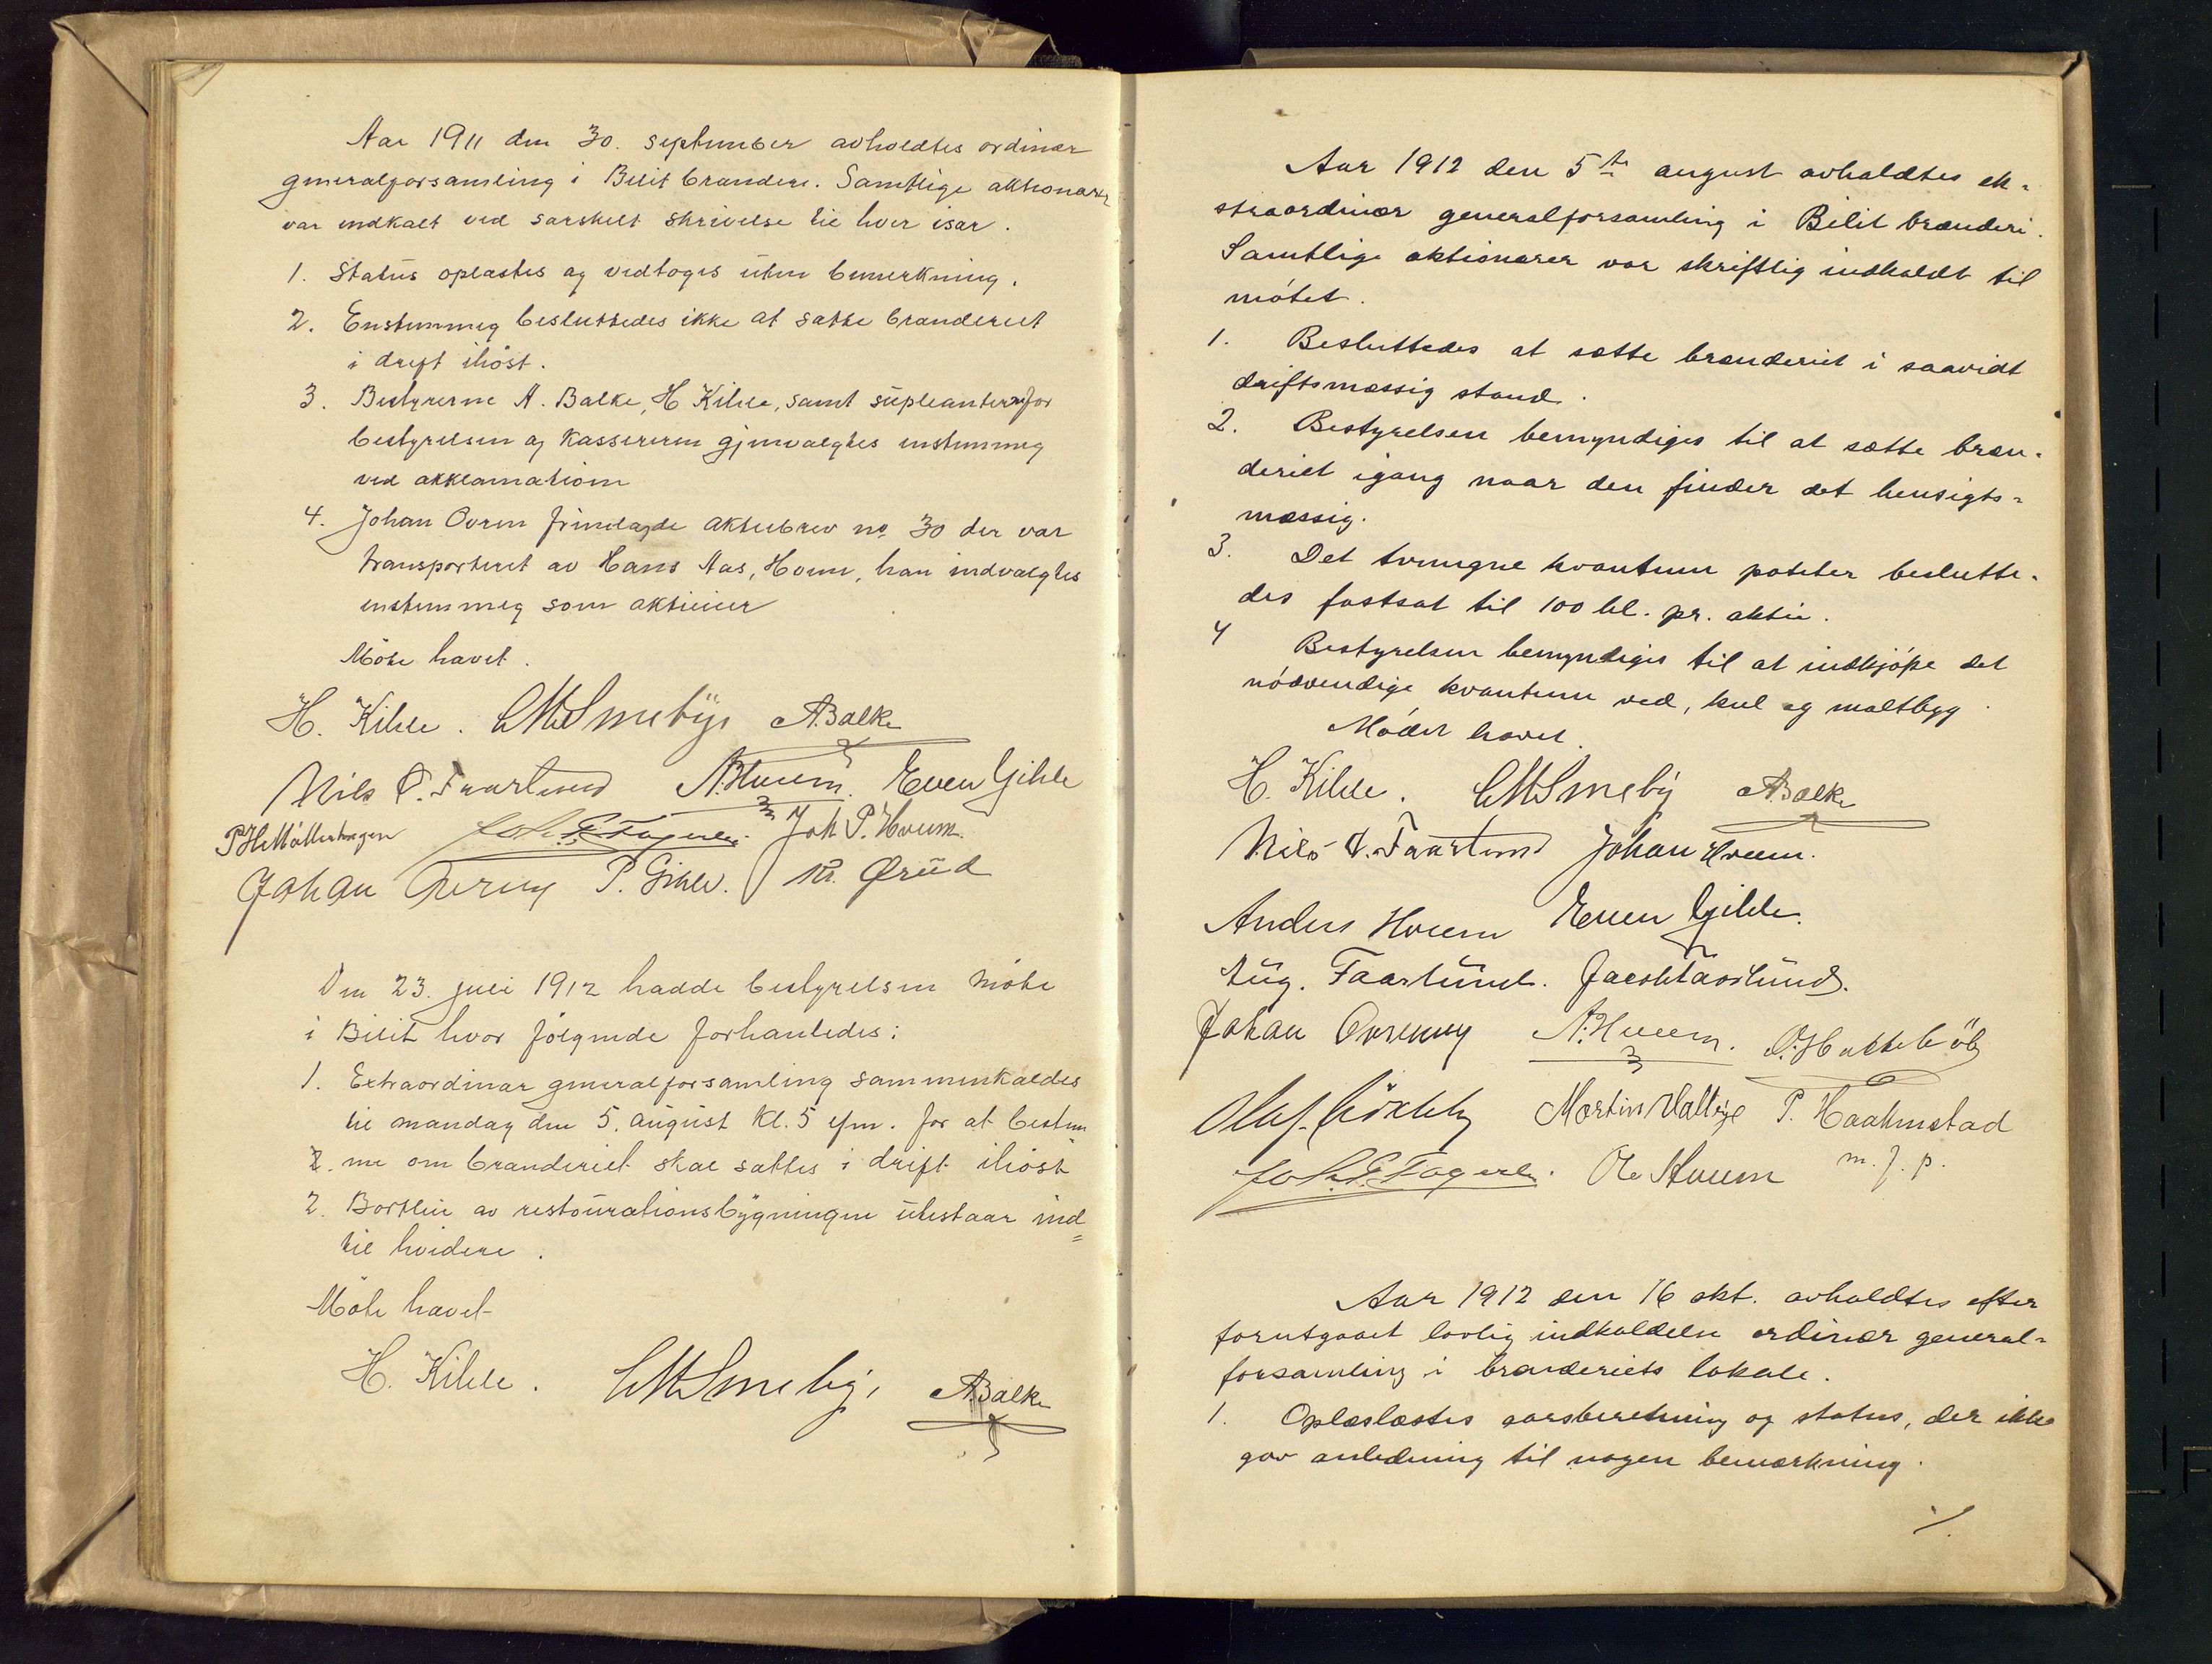 Aar 1911 den 30. september avholdtes ordinær
generalforsamling i Bilit brænderi. Samtlige aktionærer
var indkalt ved særskelt skrivelse til hver især.
1. Status oplæstes og vedtoges uten bemerkning.
2. Enstemmig besluttedes ikke at sætte brænderiet
i drift ihøst.
3. Bestyrerne A. Balke, H Kihle, samt supleanterne for
bestyrelsen og kassereren gjenvalgtes enstemmig
ved akklamation
4. Johan Overen fremlagde aktiebrev no 30 der var
transporteret av Hans Aas, Hoem, han indvalgtes
enstemmig som aktieier
Møte hævet.
H. Kihle. CMSmeby A Balke
Nils O. Faarlund A. Hveem. Even Gihle
P H Møllerhagen Joh. E. Fagerli. Joh P. Hveem.
Johan Øveren P. Gihle. Kr. Ørud
Den 23. juli 1912 hadde bestyrelsen møte
i Bilit hvor følgende forhanledes:
1. Extraordinær generalforsamling sammenkaldes
til mandag den 5. august kl. 5 efm. for at bestem
2. me om brænderiet skal sættes i drift ihøst
2. Bortleie av restourationsbygningen utestaar ind=
til hvidere.
Møte hævet
H. Kihle. CMSmeby, A Balke
Aar 1912 den 5te august avholdtes ek-
straordinær generalforsamling i Bilit brænderi.
Samtlige aktionærer var skriftlig indkaldt til
møtet.
1. Besluttedes at sætte brænderiet i saavidt
driftsmæssig stand.
2. Bestyrelsen bemyndiges til at sætte bræn-
deriet igang naar den finder det hensigts=
mæssig.
3. Det tvungne kvantum poteter beslutte-
des fastsat til 100 hl. pr. aktie.
4 Bestyrelsen bemyndiges til at indkjøpe det
nødvendige kvantum ved, kul og maltbyg.
Mødet hævet.
H. Kihle. CMSmeby A Balke
Nils O. Faarlund Johan Hveem.
Anders Hveem Even Gihle.
Aug. Faarlund. Jacob Faarlund.
Johan Øveren A. Hveem.
Olaf Martin P. Haakenstad
Joh. E. Fagerli. Ole Hveem m. f. p.
Aar 1912 den 16 okt. avholdtes efter
forutgaaet lovlig indkaldelse ordinær general-
forsamling i brænderiets lokale.
1. Oplæstes aarsberetning og status, der ikke
gav anledning til nogen bemærkning.
./.